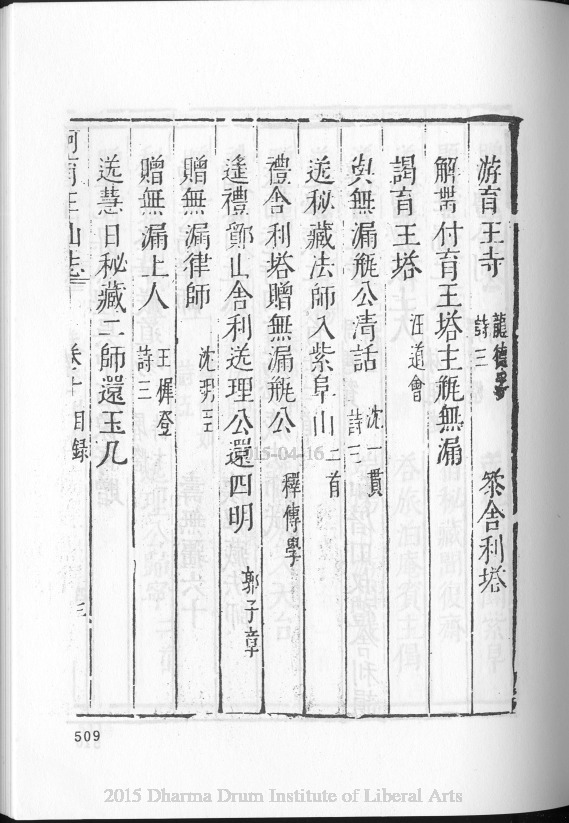 游育王寺 龍德孚 詩三 叅舍利塔
解帶付育王塔主瓶無漏
謁育王塔 汪道會
與無漏瓶公清話 沈一貫 詩三
送秘藏法師入紫阜山二首
禮舍利塔贈無漏瓶公 釋傳學
遙禮鄮山舍利送理公還四明 郭子章
贈無漏律師 沈
贈無漏上人 王穉登 詩三
送慧日秘藏二師還玉几
阿育王山志 卷十 目錄 三
509
2015-04-16
2015 Dharma Drum Institute of Liberal Arts